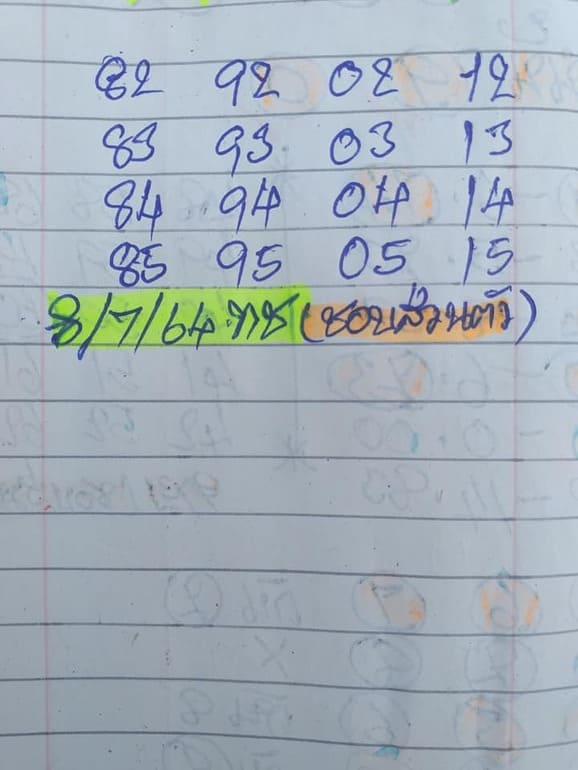 82 92 02 12
83 93 03 13
84 94 04 14
85 95 05 15
8/7/64 พช (ชอบส่วนตัว)